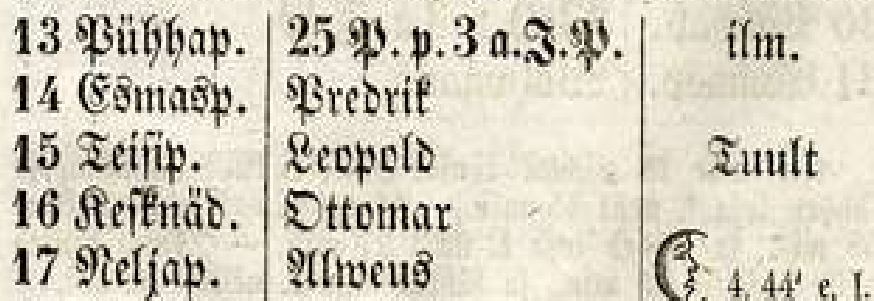 13 Pühhap. 25 P. p. 3 a. J. P. ilm.
14 Esmasp. Predrik
15 Teisip. Leopold Tuult
16 Kesknäd. Ottomar
17 Neljap. Alweus 4, 44' e. l.